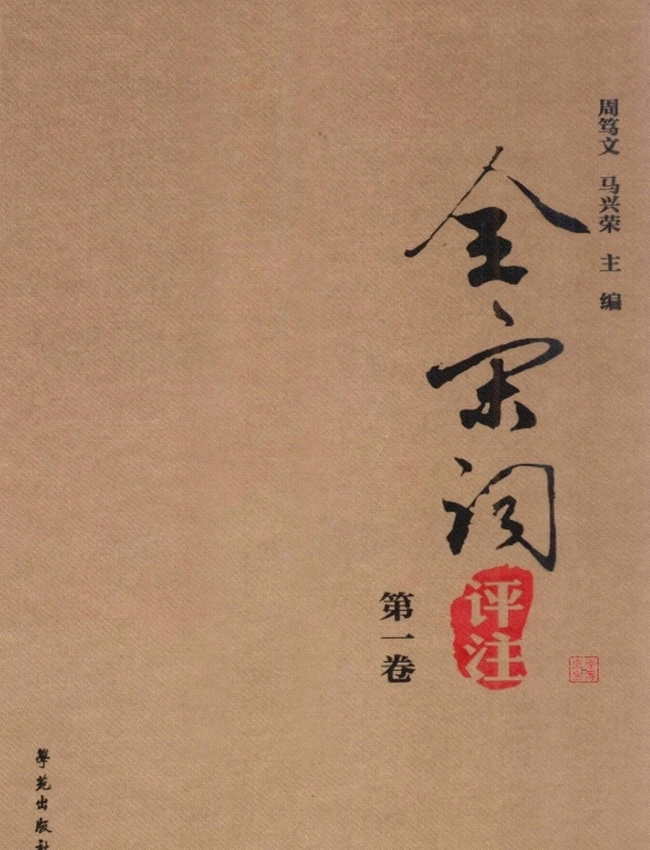 周笃文 马兴荣 主编
全宋词
评注
第一卷
學苑出版社